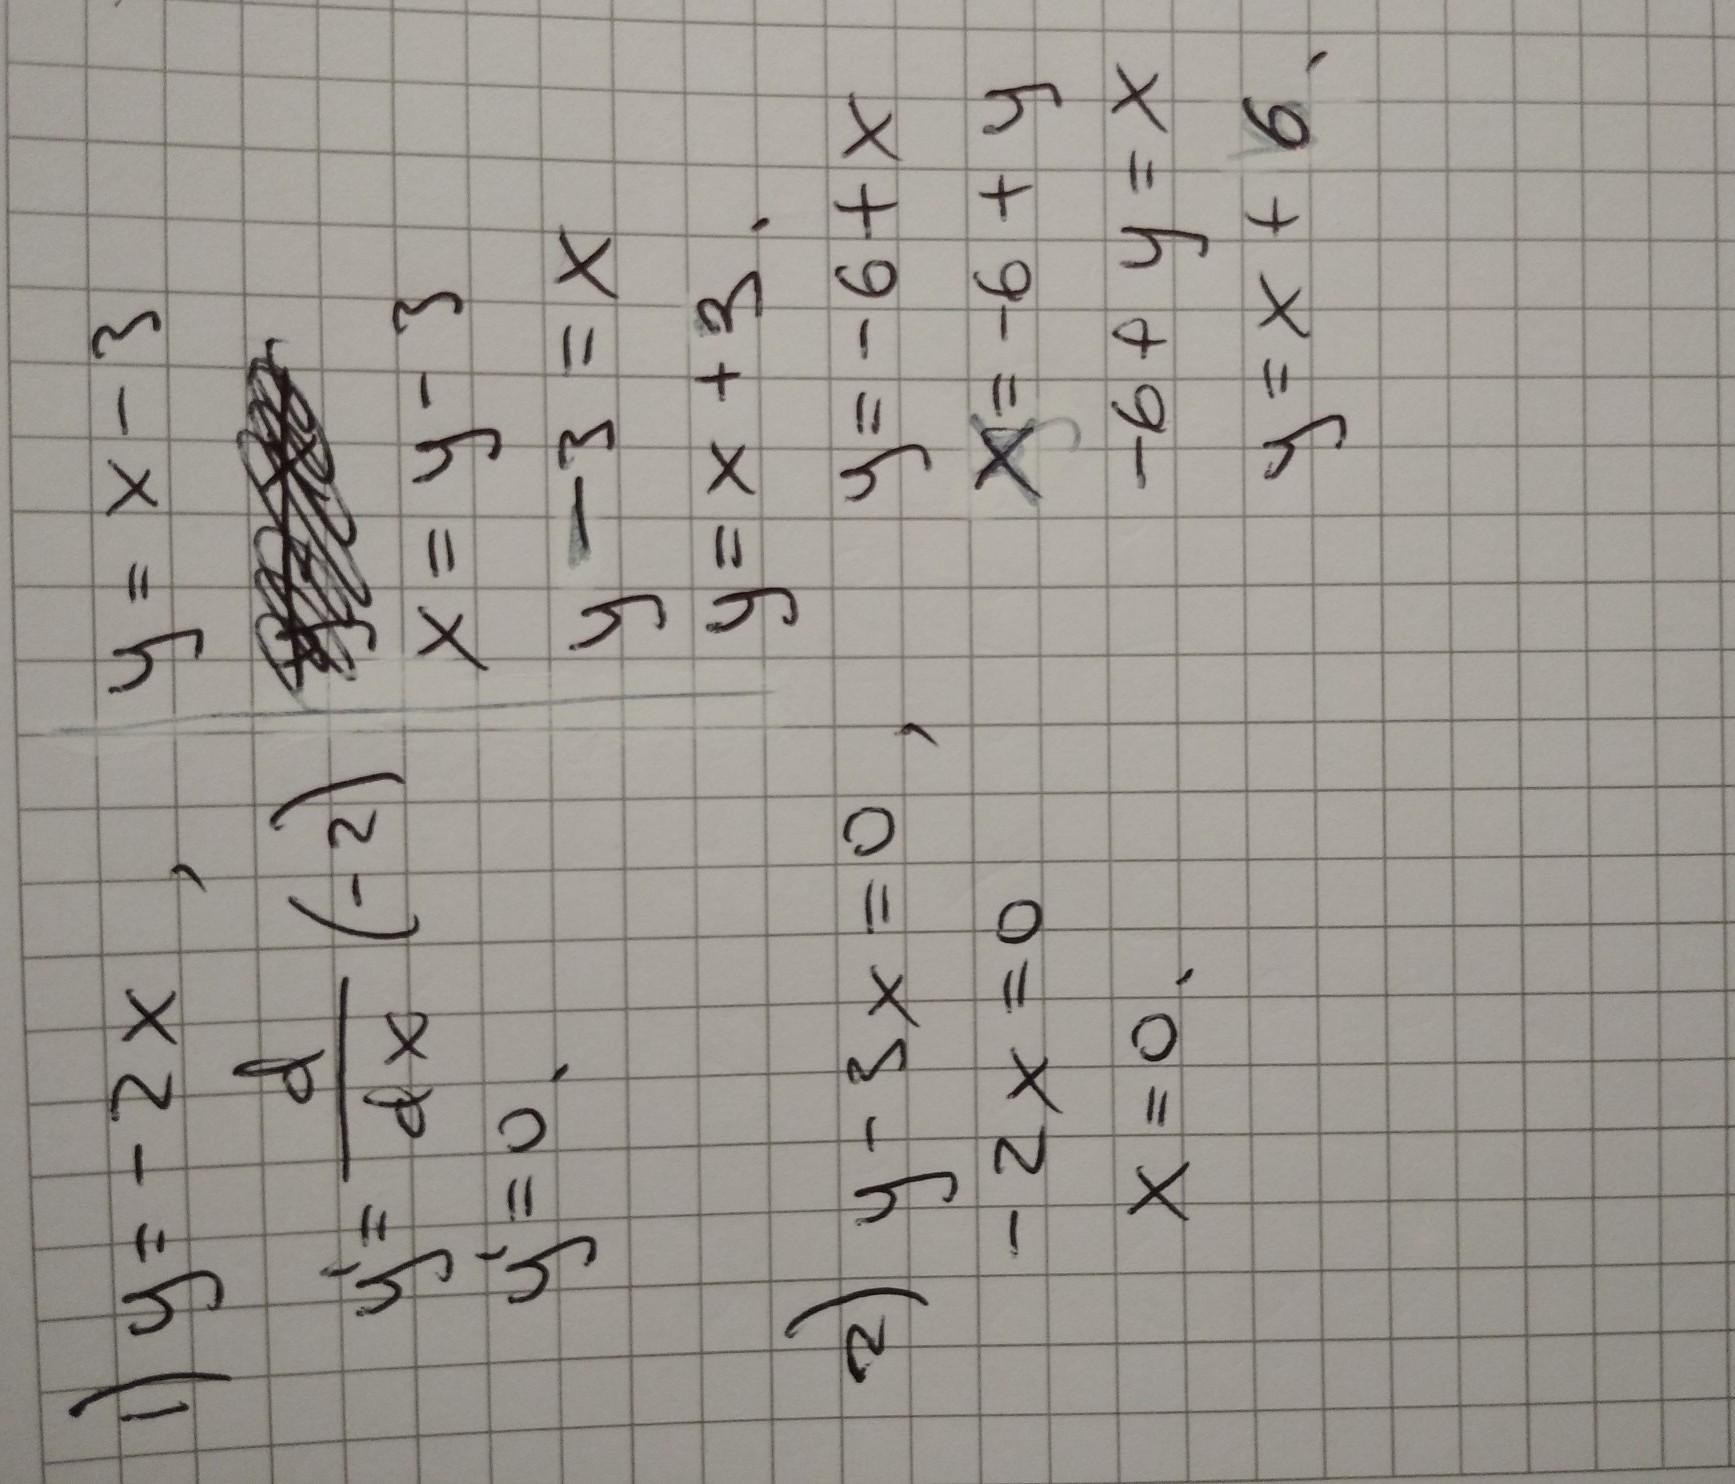 1) y = - 2x ,
y' = d/dx (-2)
y' = 0.
2) y - 3x = 0 ,
- 2x = 0
x = 0.
y = x - 3
x = y - 3
y - 3 = x
y = x + 3.
y = - 6 + x
x = - 6 + y
- 6 + y = x
y = x + 6.